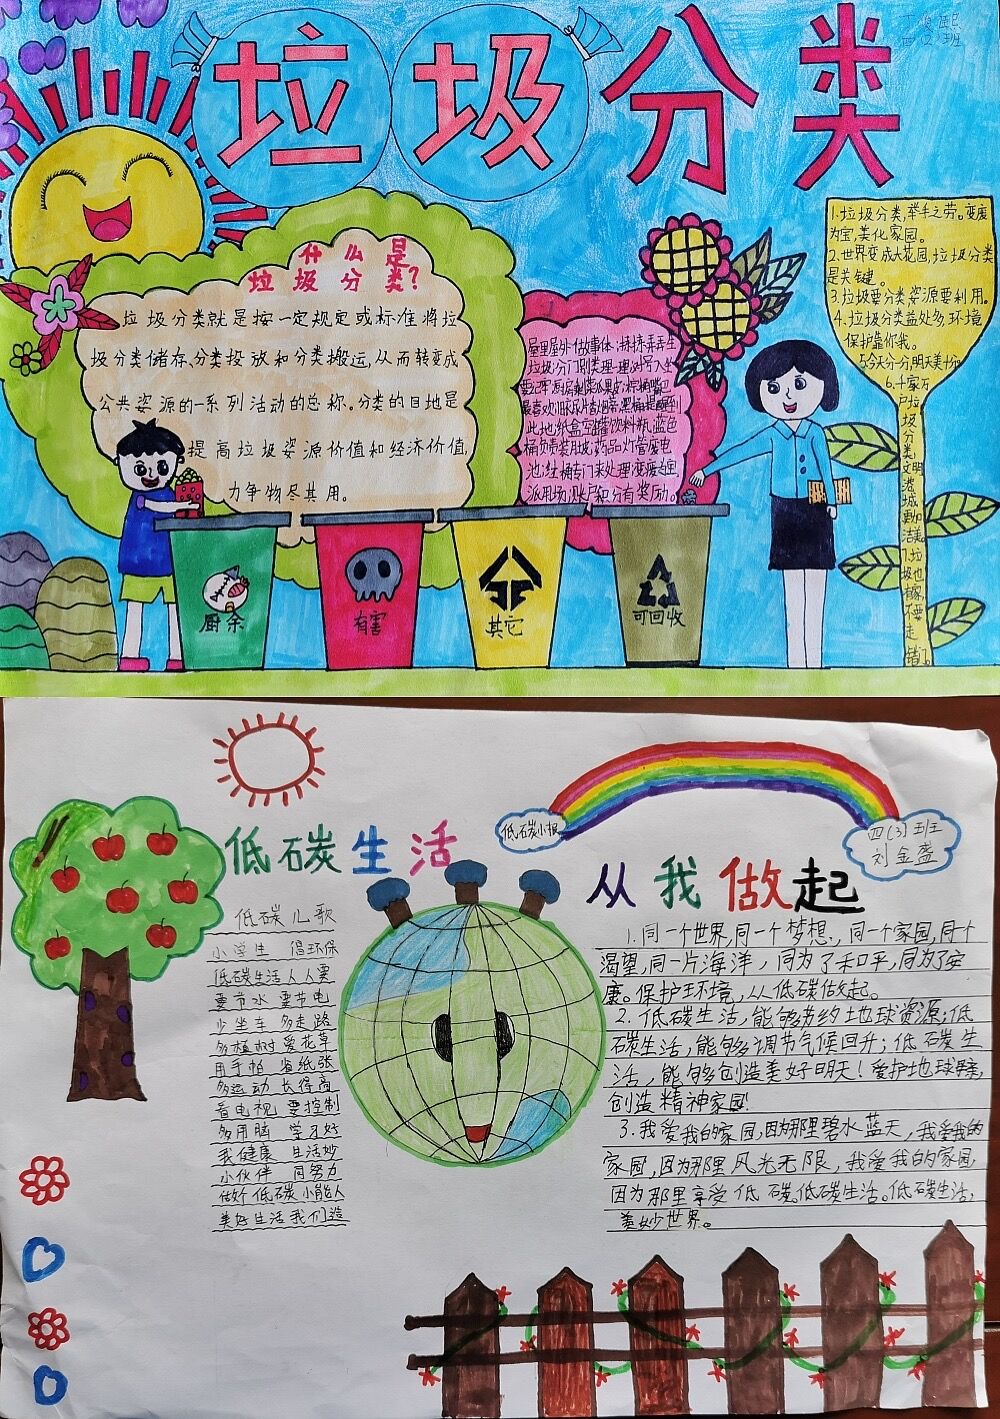 垃圾分类
四(2)班
什么是
垃圾分类?
垃圾分类就是按一定规定或标准将垃
圾分类储存、分类投放和分类搬运,从而转变成
公共资源的一系列活动的总称。分类的目地是
提高垃圾资源价值和经济价值,
力争物尽其用。
屋里屋外做事体,抹抹弄弄生
垃圾;分门别类理一理,对号入坐
此地;纸盒空罐饮料瓶,蓝色
桶负责装用圾;药品灯管废电
池;红桶专门来处理;变废为宝
派用场;账户积分有奖励。
1.垃圾分类,举手之劳。变废
为宝,美化家园。
2.世界变成大花园,垃圾分类
是关键。
3.垃圾要分类资源要利用。
4.垃圾分类益处多环境
保护靠你我。
5.今天分一分,明天美十分
6.千家万
户垃
圾
分
类,
文明
港
城
更加
洁美
7.垃
圾也
有家,
不要
走
错门。
厨余
有害
其它
可回收
低碳小报
四(3)班
刘金盏
低碳生活
从我做起
低碳儿歌
小学生 倡环保
低碳生活人人要
要节水 要节电
少坐车 多走路
多植树 爱花草
用手帕 省纸张
多运动 长得高
看电视 要控制
多用脑 学习好
我健康 生活妙
小伙伴 同努力
做个低碳小能人
美好生活我们造
1.同一个世界,同一个梦想、,同一个家园,同个
渴望,同一片海洋,同为了和平,同为了安
康。保护环境,从低碳做起。
2.低碳生活,能够节约地球资源;低
碳生活,能够调节气候回升;低碳生
活,能够创造美好明天!爱护地球母亲,
创造精神家园!
3.我爱我的家园,因为那里碧水蓝天,我爱我的
家园,因为那里风光无限,我爱我的家园,
因为那里享受低碳。低碳生活。低碳生活,
美妙世界。